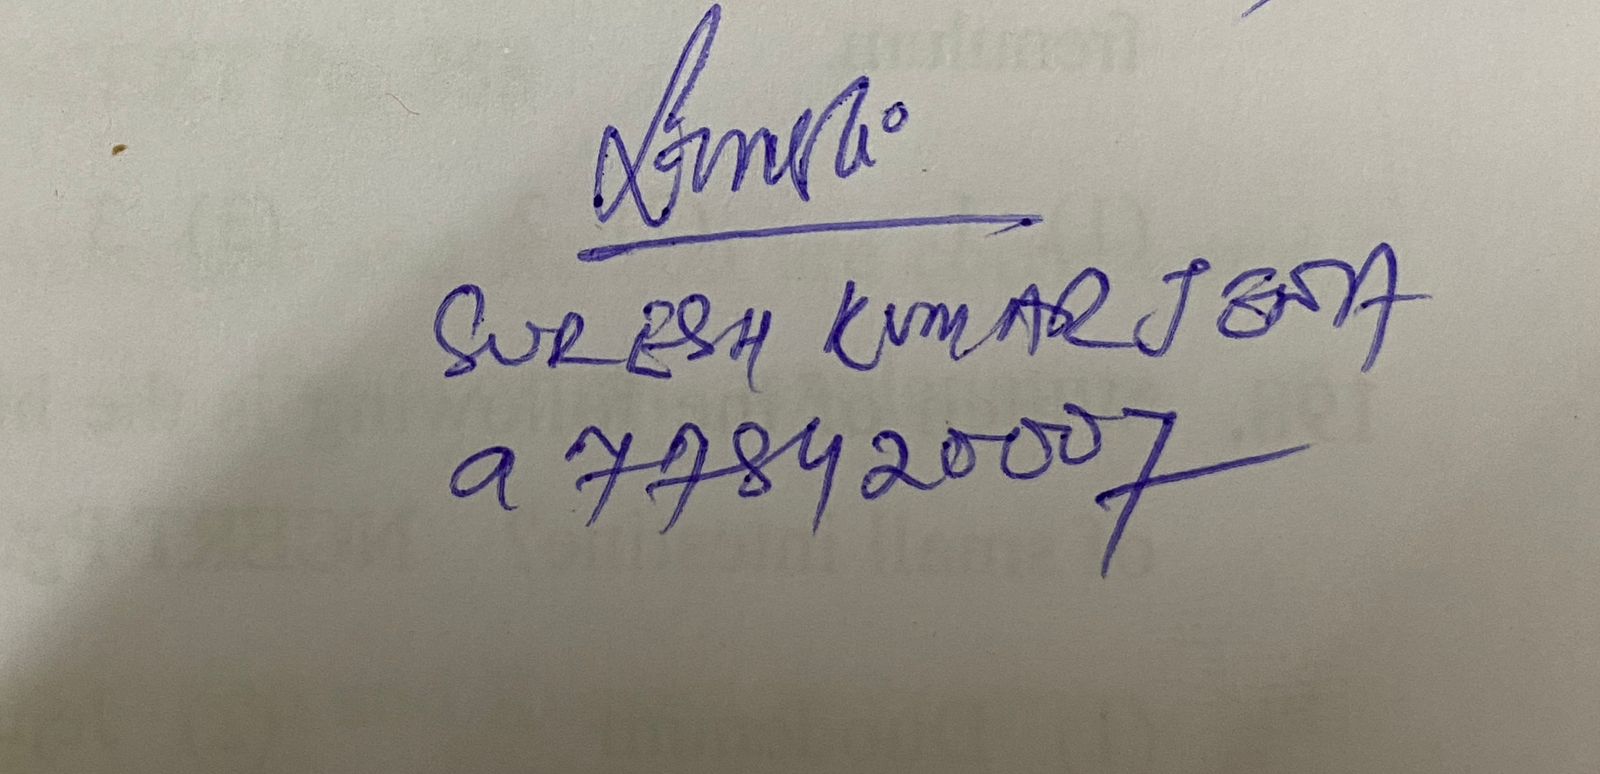 SURESH KUMAR JENA
9778420007